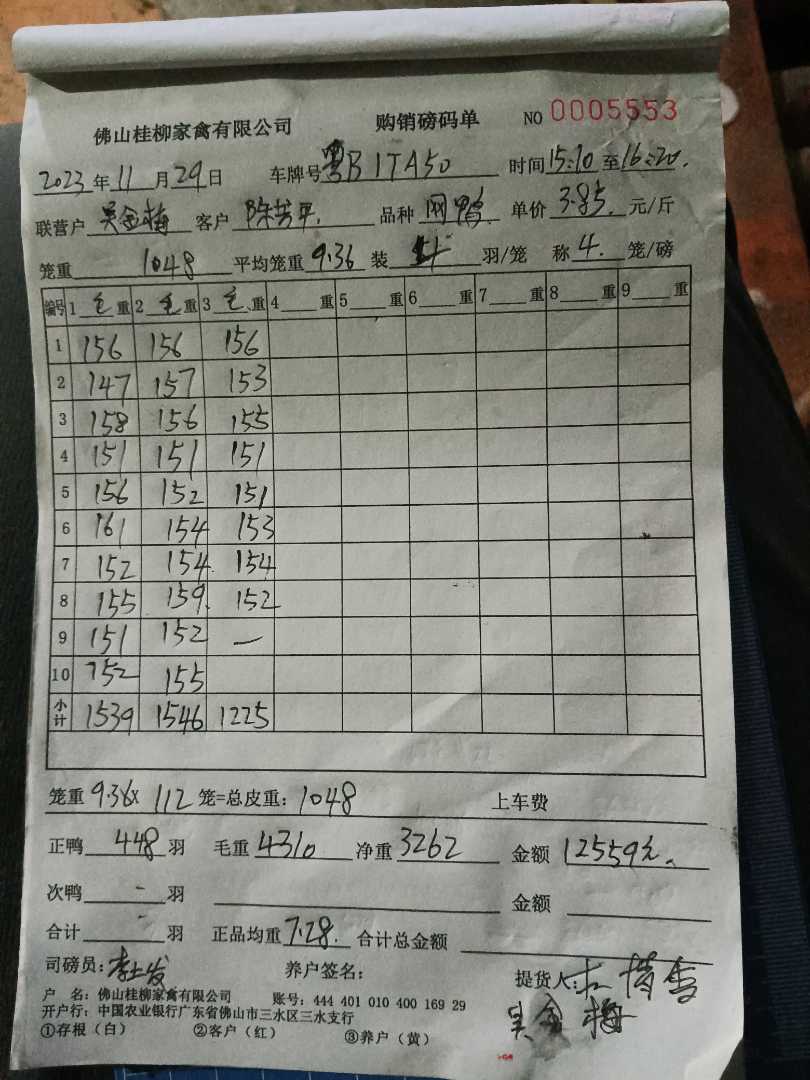 佛山桂柳家禽有限公司 购销磅码单 NO 0005553
2023年11月29日 车牌号粤B1TA50 时间15:10至16:20.
联营户吴金梅 客户陈芳平. 品种网鸭 单价3.85.元/斤
笼重1048 平均笼重9.36装4羽/笼 称4.笼/磅
编号 1毛重 2毛重 3毛重 4重 5重 6重 7重 8重 9重
1 156 156 156
2 147 157 153
3 158 156 155
4 151 151 151
5 156 152 151
6 161 154 153
7 152 154 154
8 155 159 152
9 151 152 —
10 152 155
小计 1539 1546 1225
笼重9.36x112笼=总皮重:1048 上车费
正鸭448羽 毛重4310 净重3262 金额12559元.
次鸭-羽 金额
合计-羽 正品均重7.28. 合计总金额
司磅员: 养户签名: 提货人:
吴金梅
户 名:佛山桂柳家禽有限公司 账号:444 401 010 400 169 29
开户行:中国农业银行广东省佛山市三水区三水支行
①存根(白) ②客户(红) ③养户(黄)